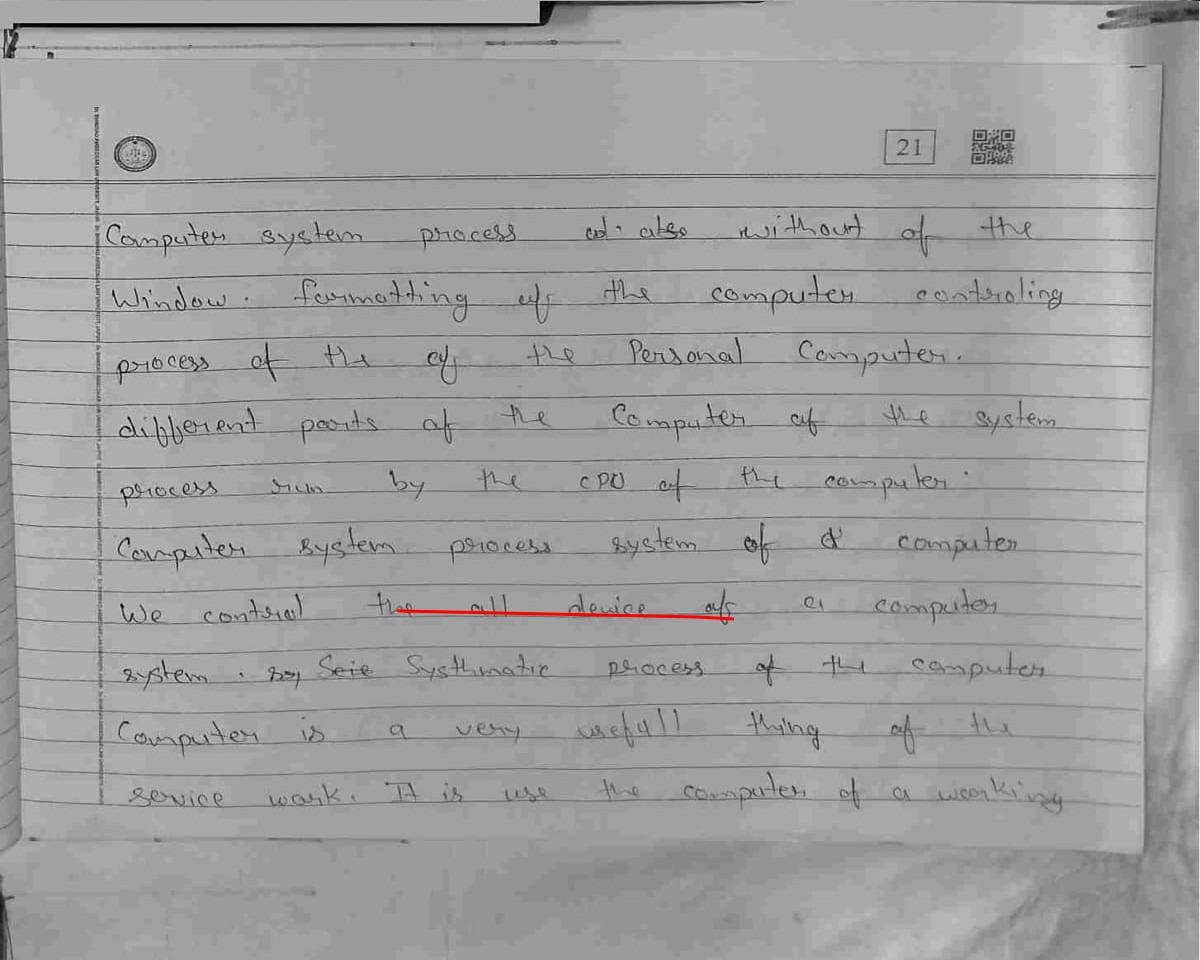 21
Computer system process also without of the
Window. formatting of the computer controling
process of the of the Personal Computer.
different parts of the Computer of the system
process run by the CPU of the computer.
Computer system process system of computer
We control the all device of a computer
system. Systhmatic process of the computer
Computer is a very usefull thing of the
service work. It is use the computer of a working